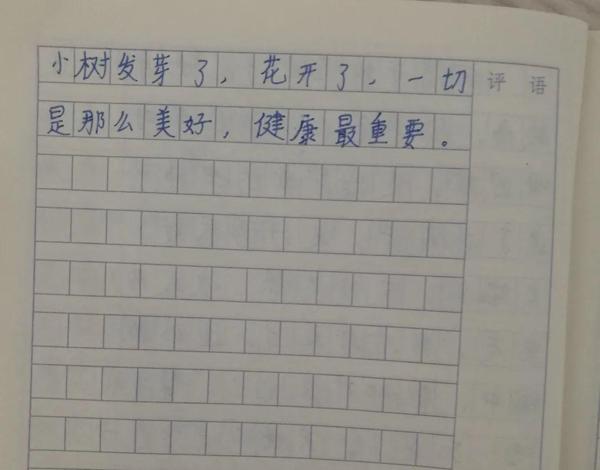 小树发芽了，花开了，一切
是那么美好，健康最重要。
评语